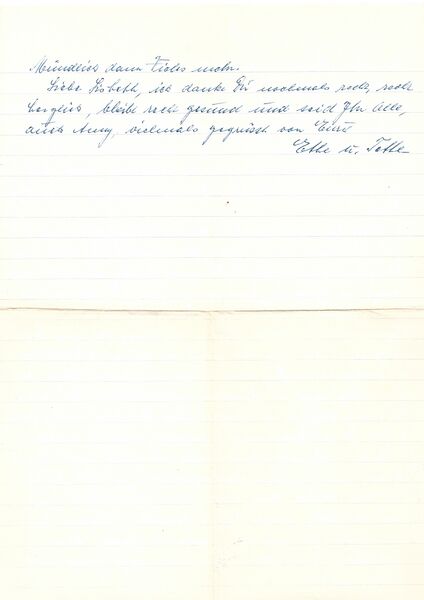 Mündlich dann Vieles mehr.
Liebe Lisbeth, ich danke Dir nochmals recht, recht
herzlich, bleibe recht gesund und seid Ihr Alle,
auch Anny, vielmals gegrüsst von Eure
Ette u. Tette